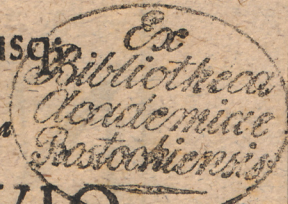 usq;
Ex
Bibliotheca
Academiae
Rostochiensis